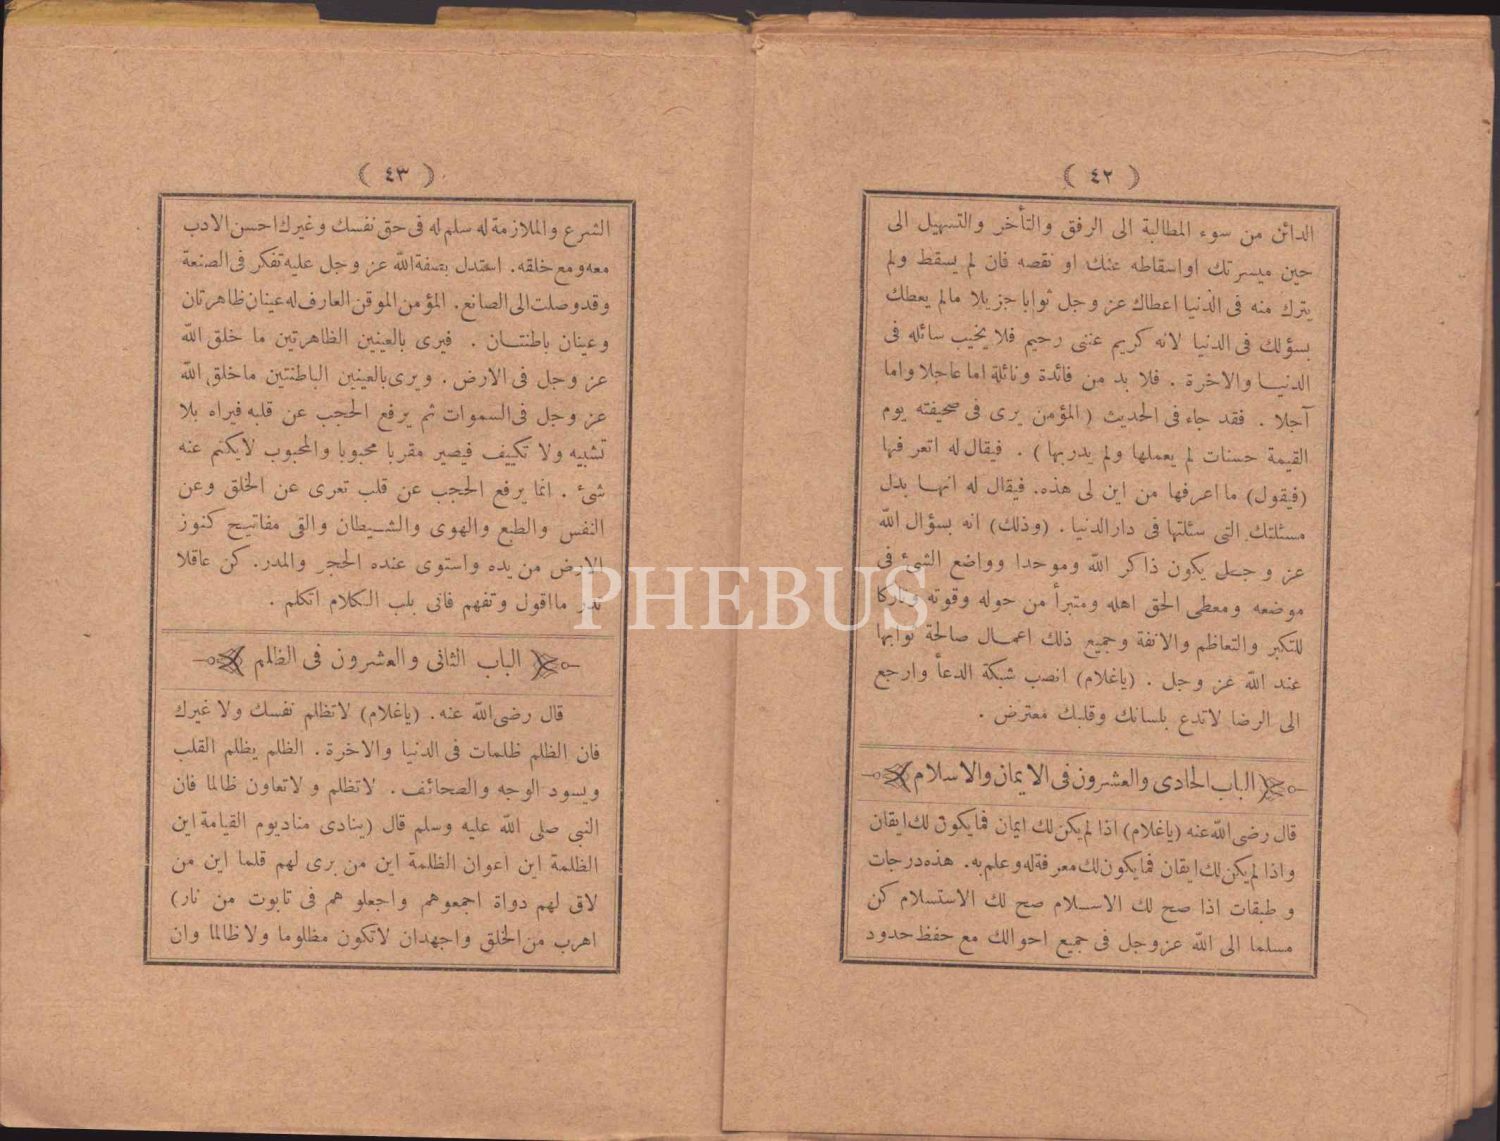 ( ٤٢ )
الدائن من سوء المطالبة الى الرفق والتأخر والتسهيل الى
حين ميسرتك او اسقاطه عنك او نقصه فان لم يسقط ولم
يترك منه فى الدنيا اعطاك عز وجل ثوابا جزيلا مالم يعطك
بسؤلك فى الدنيا لانه كريم غنى رحيم فلا يخيب سائله فى
الدنيا والاخرة . فلا بد من فائدة ونائلة اما عاجلا واما
آجلا . فقد جاء فى الحديث ( المؤمن يرى فى صحيفته يوم
القيمة حسنات لم يعملها ولم يدربها ) . فيقال له اتعرفها
(فيقول) ما اعرفها من اين لى هذه. فيقال له انها بدل
مسئلتك التى سئلتها فى دار الدنيا . (وذلك) انه بسؤال الله
عز وجل يكون ذاكر الله وموحدا وواضع الشئ فى
موضعه ومعطى الحق اهله ومتبرأ من حوله وقوته وتاركا
للتكبر والتعاظم والانفة وجميع ذلك اعمال صالحة ثوابها
عند الله عز وجل . (ياغلام) انصب شبكة الدعأ وارجع
الى الرضا لاتدع بلسانك وقلبك معترض .
الباب الحادى والعشرون فى الايمان والاسلام
قال رضى الله عنه (ياغلام) اذا لم يكن لك ايمان فمايكون لك ايقان
واذا لم يكن لك ايقان فمايكون لك معرفة له وعلم به. هذه درجات
وطبقات اذا صح لك الاسلام صح لك الاستسلام كن
مسلما الى الله عزوجل فى جميع احوالك مع حفظ حدود
( ٤٣ )
الشرع والملازمة له سلم له فى حق نفسك وغيرك احسن الادب
معه ومع خلقه. استدل بصفة الله عز وجل عليه تفكر فى الصنعة
وقد وصلت الى الصانع. المؤمن الموقن العارف له عينان ظاهرتان
وعينان باطنتان . فيرى بالعينين الظاهرتين ما خلق الله
عز وجل فى الارض . ويرى بالعينين الباطنتين ماخلق الله
عز وجل فى السموات ثم يرفع الحجب عن قلبه فيراه بلا
تشبيه ولا تكييف فيصير مقربا محبوبا والمحبوب لايكتم عنه
شئ . انما يرفع الحجب عن قلب تعرى عن الخلق وعن
النفس والطبع والهوى والشيطان والقى مفاتيح كنوز
الارض من يده واستوى عنده الحجر والمدر. كن عاقلا
تدبر مااقول وتفهم فانى بلب الكلام اتكلم .
الباب الثانى والعشرون فى الظلم
قال رضى الله عنه. (ياغلام) لاتظلم نفسك ولا غيرك
فان الظلم ظلمات فى الدنيا والاخرة . الظلم يظلم القلب
ويسود الوجه والصحائف. لاتظلم ولا تعاون ظالما فان
النبى صلى الله عليه وسلم قال (ينادى مناديوم القيامة اين
الظلمة اين اعوان الظلمة اين من برى لهم قلما اين من
لاق لهم دواة اجمعوهم واجعلو هم فى تابوت من نار)
اهرب من الخلق واجهدان لاتكون مظلوما ولا ظالما وان
PHEBUS